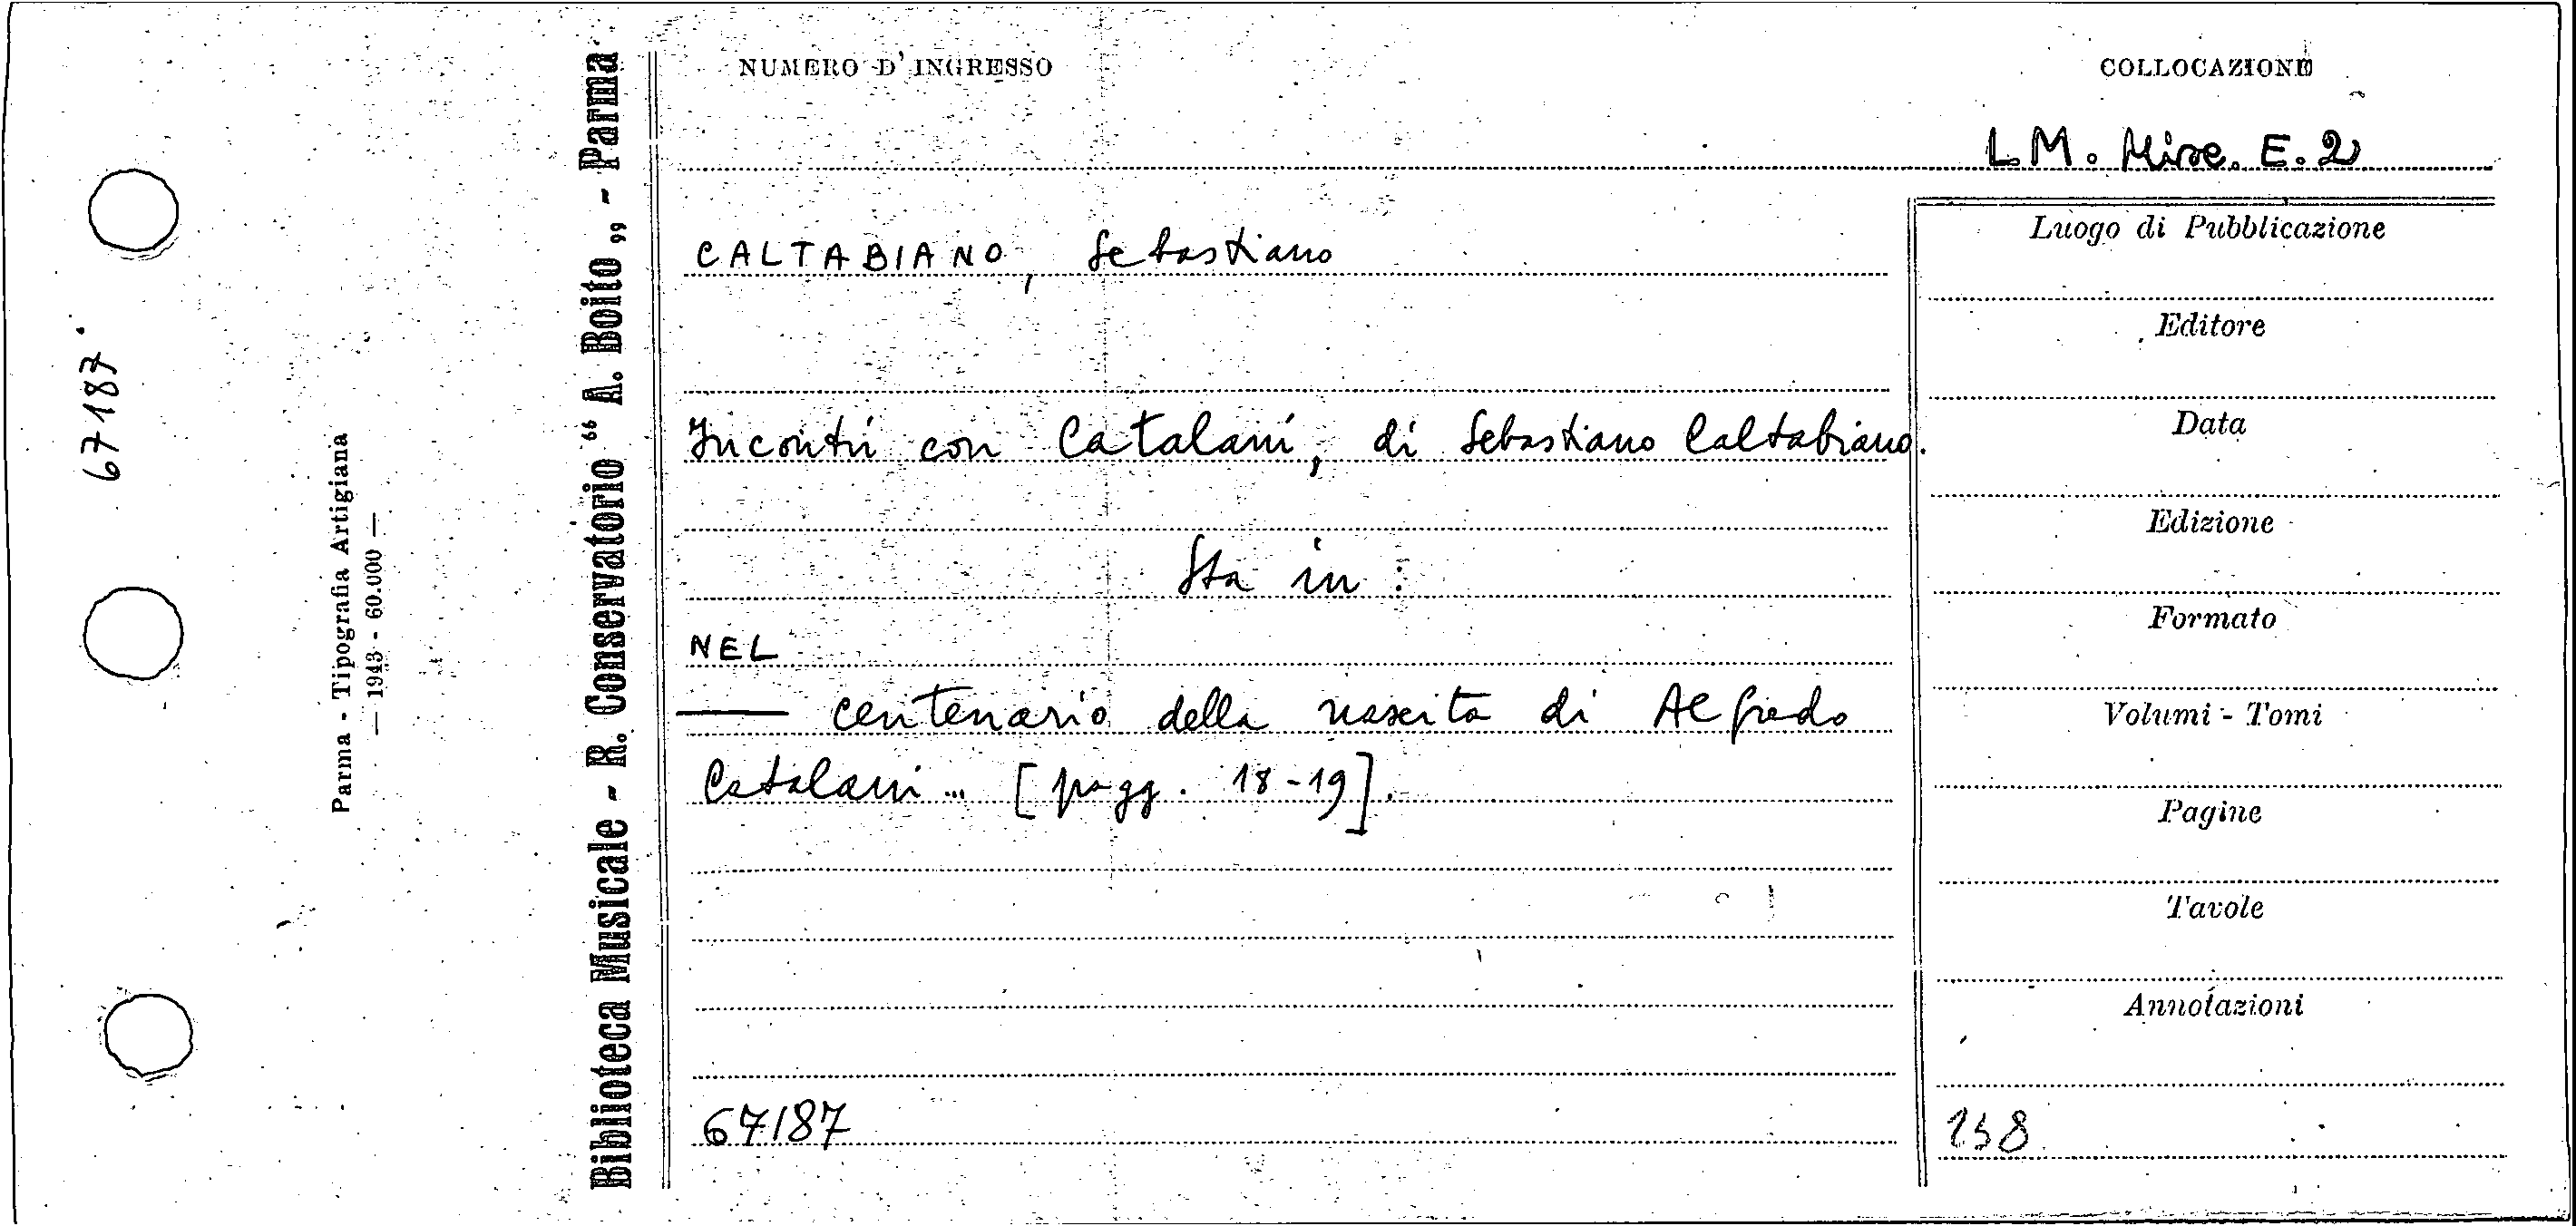 67187
Parma - Tipografia Artigiana
— 1943 - 60.000 —
Biblioteca Musicale - R. Conservatorio “A. Boito„ - Parma
NUMERO D'INGRESSO
COLLOCAZIONE
LM. Misc. E. 2
CALTABIANO, Sebastiano
Incontri con Catalani, di Sebastiano Caltabiano.
Sta in :
NEL
— centenario della nascita di Alfredo
Catalani ... [pagg. 18-19].
67187
Luogo di Pubblicazione
Editore
Data
Edizione
Formato
Volumi - Tomi
Pagine
Tavole
Annotazioni